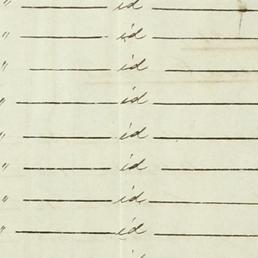 " — id —
" — id —
" — id —
" — id —
" — id —
" — id —
" — id —
" — id —